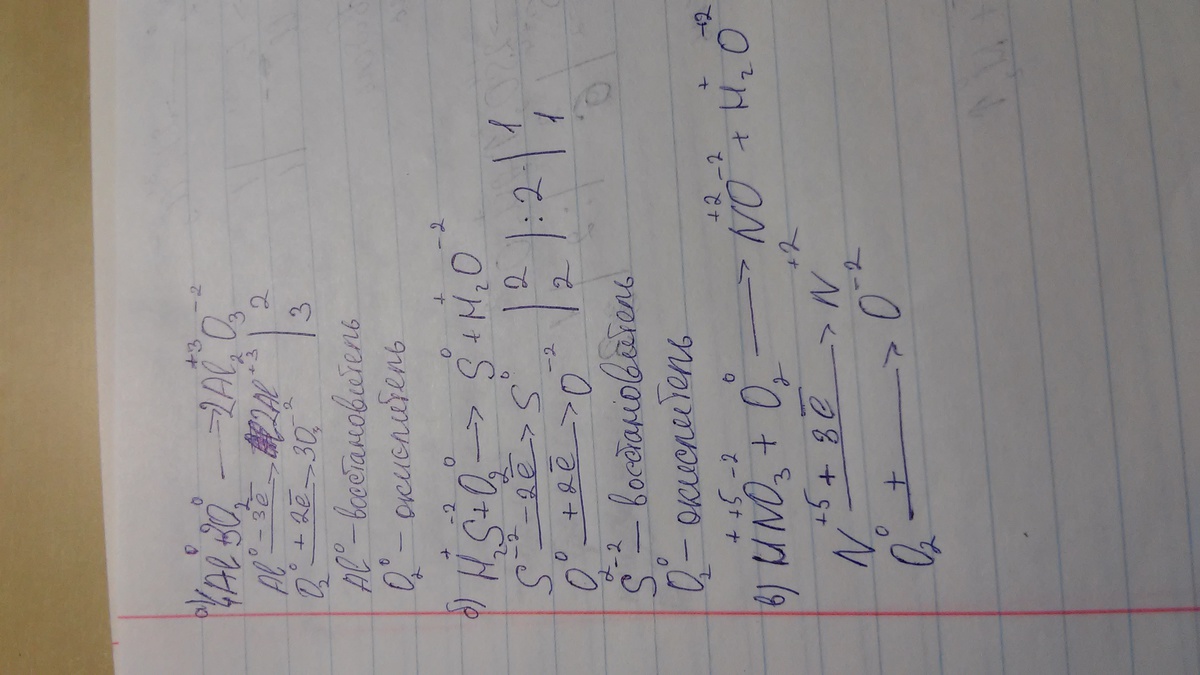 а) 4Al⁰ + 3O₂⁰ → 2Al₂⁺³O₃⁻²
Al⁰ – 3ē → 2Al⁺³ | 2
O₂⁰ + 2ē → 3O⁻² | 3
Al⁰ – восстановитель
O₂⁰ – окислитель
б) H₂⁺S⁻² + O₂⁰ → S⁰ + H₂⁺O⁻²
S⁻² – 2ē → S⁰ | 2 | : 2 | 1
O₂⁰ + 2ē → O⁻² | 2 | 1
S⁻² – восстановитель
O₂⁰ – окислитель
в) H⁺N⁺⁵O₃⁻² + O₂⁰ → N⁺²O⁻² + H₂⁺O⁻²
N⁺⁵ + 3ē → N⁺²
O₂⁰ + → O⁻²